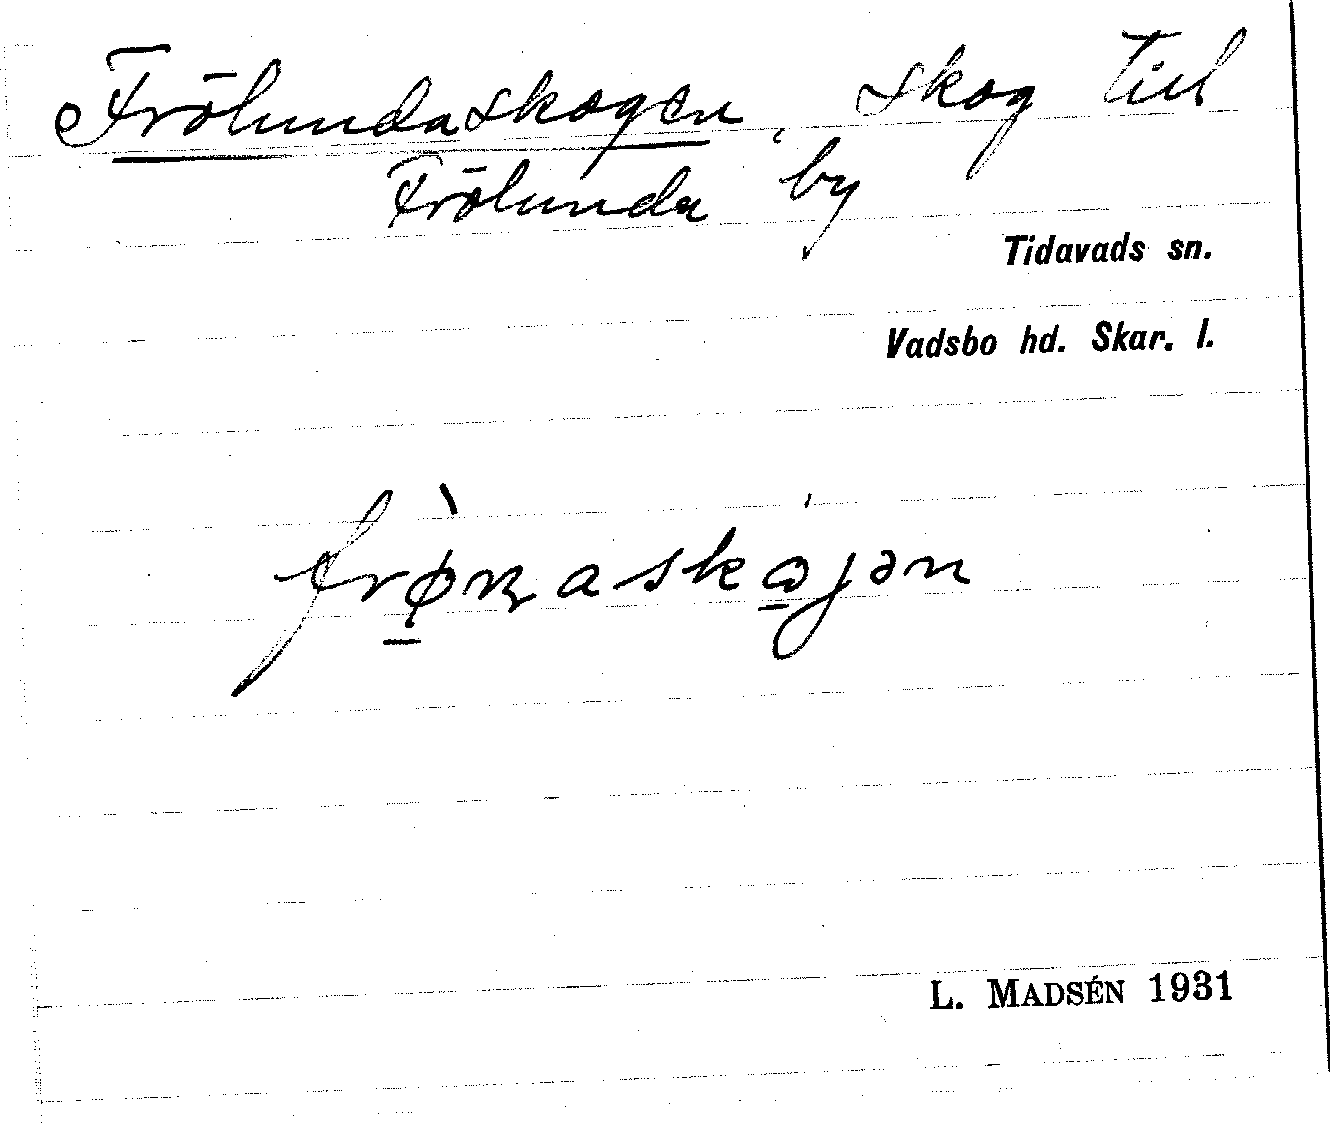 Frölundaskogen, skog till
Frölunda by
Tidavads sn.
Vadsbo hd. Skar. l.
frø̠̀n̥askɷ̠́jən
L. MADSÉN 1931